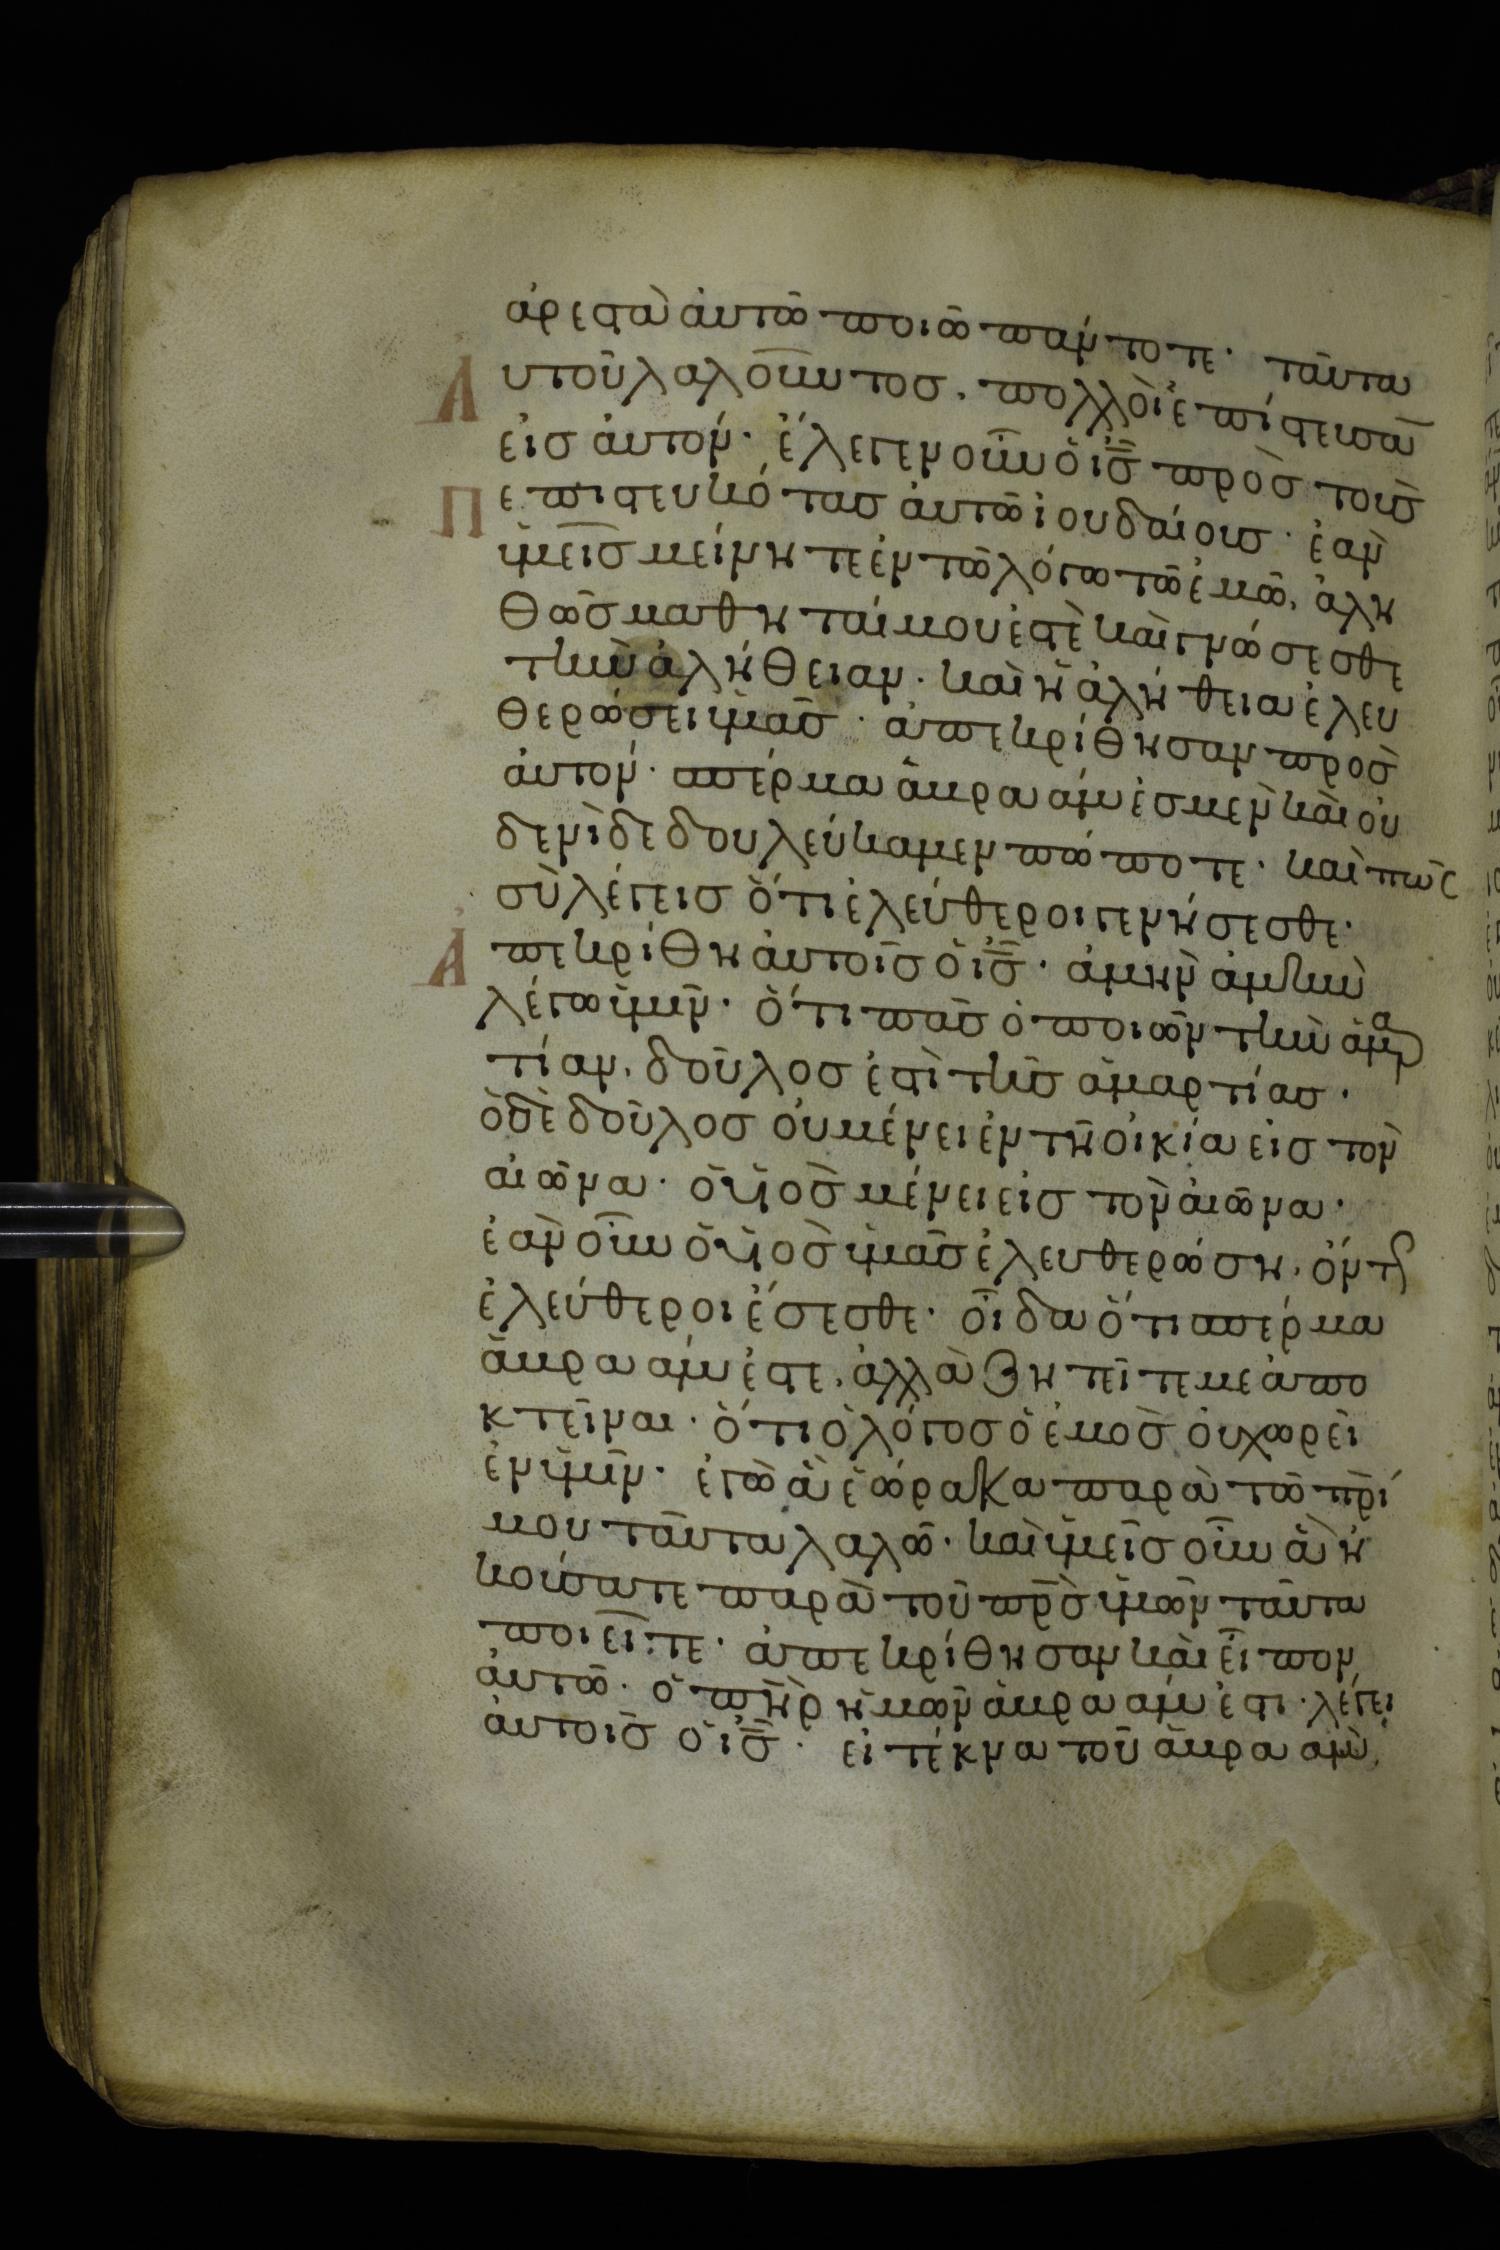 ἀρεστὰ ἀυτῶ ποιῶ πάντοτε· ταῦτα
Ἀυτοῦ λαλοῦντος, πολλοὶ ἐπίστευσαν
εἰσ ἀυτόν· ἔλεγεν οὖν ὁ ι̅ς̅ πρὸσ τοὺσ
Πεπιστευκότασ ἀυτῶ ἰουδαίουσ· ἐὰν
ὑμεῖσ μείνητε ἐν τῶ λόγω τῶ ἐμῶ, ἀλη
θῶσ μαθηταί μου ἐστὲ καὶ γνώσεσθε
τὴν ἀλήθειαν· καὶ ἡ ἀλήθεια ἐλευ
θερώσει ὑμᾶσ· ἀπεκρίθησαν προσ
ἀυτόν· σπέρμα ἀβραάμ ἐσμεν καὶ ὀυ
δενὶ δεδουλεύκαμεν πώποτε· καὶ πῶς
σὺ λέγεισ ὅτι ἐλεύθεροι γενήσεσθε·
Ἀπεκρίθη ἀυτοῖσ ὁ ι̅ς̅· ἀμὴν ἀμὴν
λέγω ὑμῖν· ὅτι πᾶσ ὁ ποιῶν τὴν ἁμαρ
τίαν, δοῦλοσ ἐστὶ τῆσ ἁμαρτίασ·
ὁ δὲ δοῦλοσ ὀυ μένει ἐν τῆ ὀικία εἰσ τὸν
ἀιῶνα· ὁ υἱὸσ μένει εἰσ τὸν ἀιῶνα·
ἐὰν οὖν ὁ υἱὸσ ὑμᾶσ ἐλευθερώση, ὄντως
ἐλεύθεροι ἔσεσθε· οἶδα ὅτι σπέρμα
ἀβραάμ ἐστε, ἀλλὰ ζητεῖτε με ἀπο
κτεῖναι· ὅτι ὁ λόγοσ ὁ ἐμὸσ ὀυ χωρεῖ
ἐν ὑμῖν· ἐγὼ ἃ ἑώρακα παρὰ τῶ π̅ρ̅ί
μου ταῦτα λαλῶ· καὶ ὑμεῖσ οὖν ἃ ἠ
κούσατε παρὰ τοῦ π̅ρ̅σ̅ ὑμῶν ταῦτα
ποιεῖτε· ἀπεκρίθησαν καὶ εἶπον
ἀυτῶ· ὁ π̅η̅ρ̅ ἡμῶν ἀβραάμ ἐστι· λέγει
ἀυτοῖσ ὁ ι̅ς̅· εἰ τέκνα τοῦ ἀβραὰμ